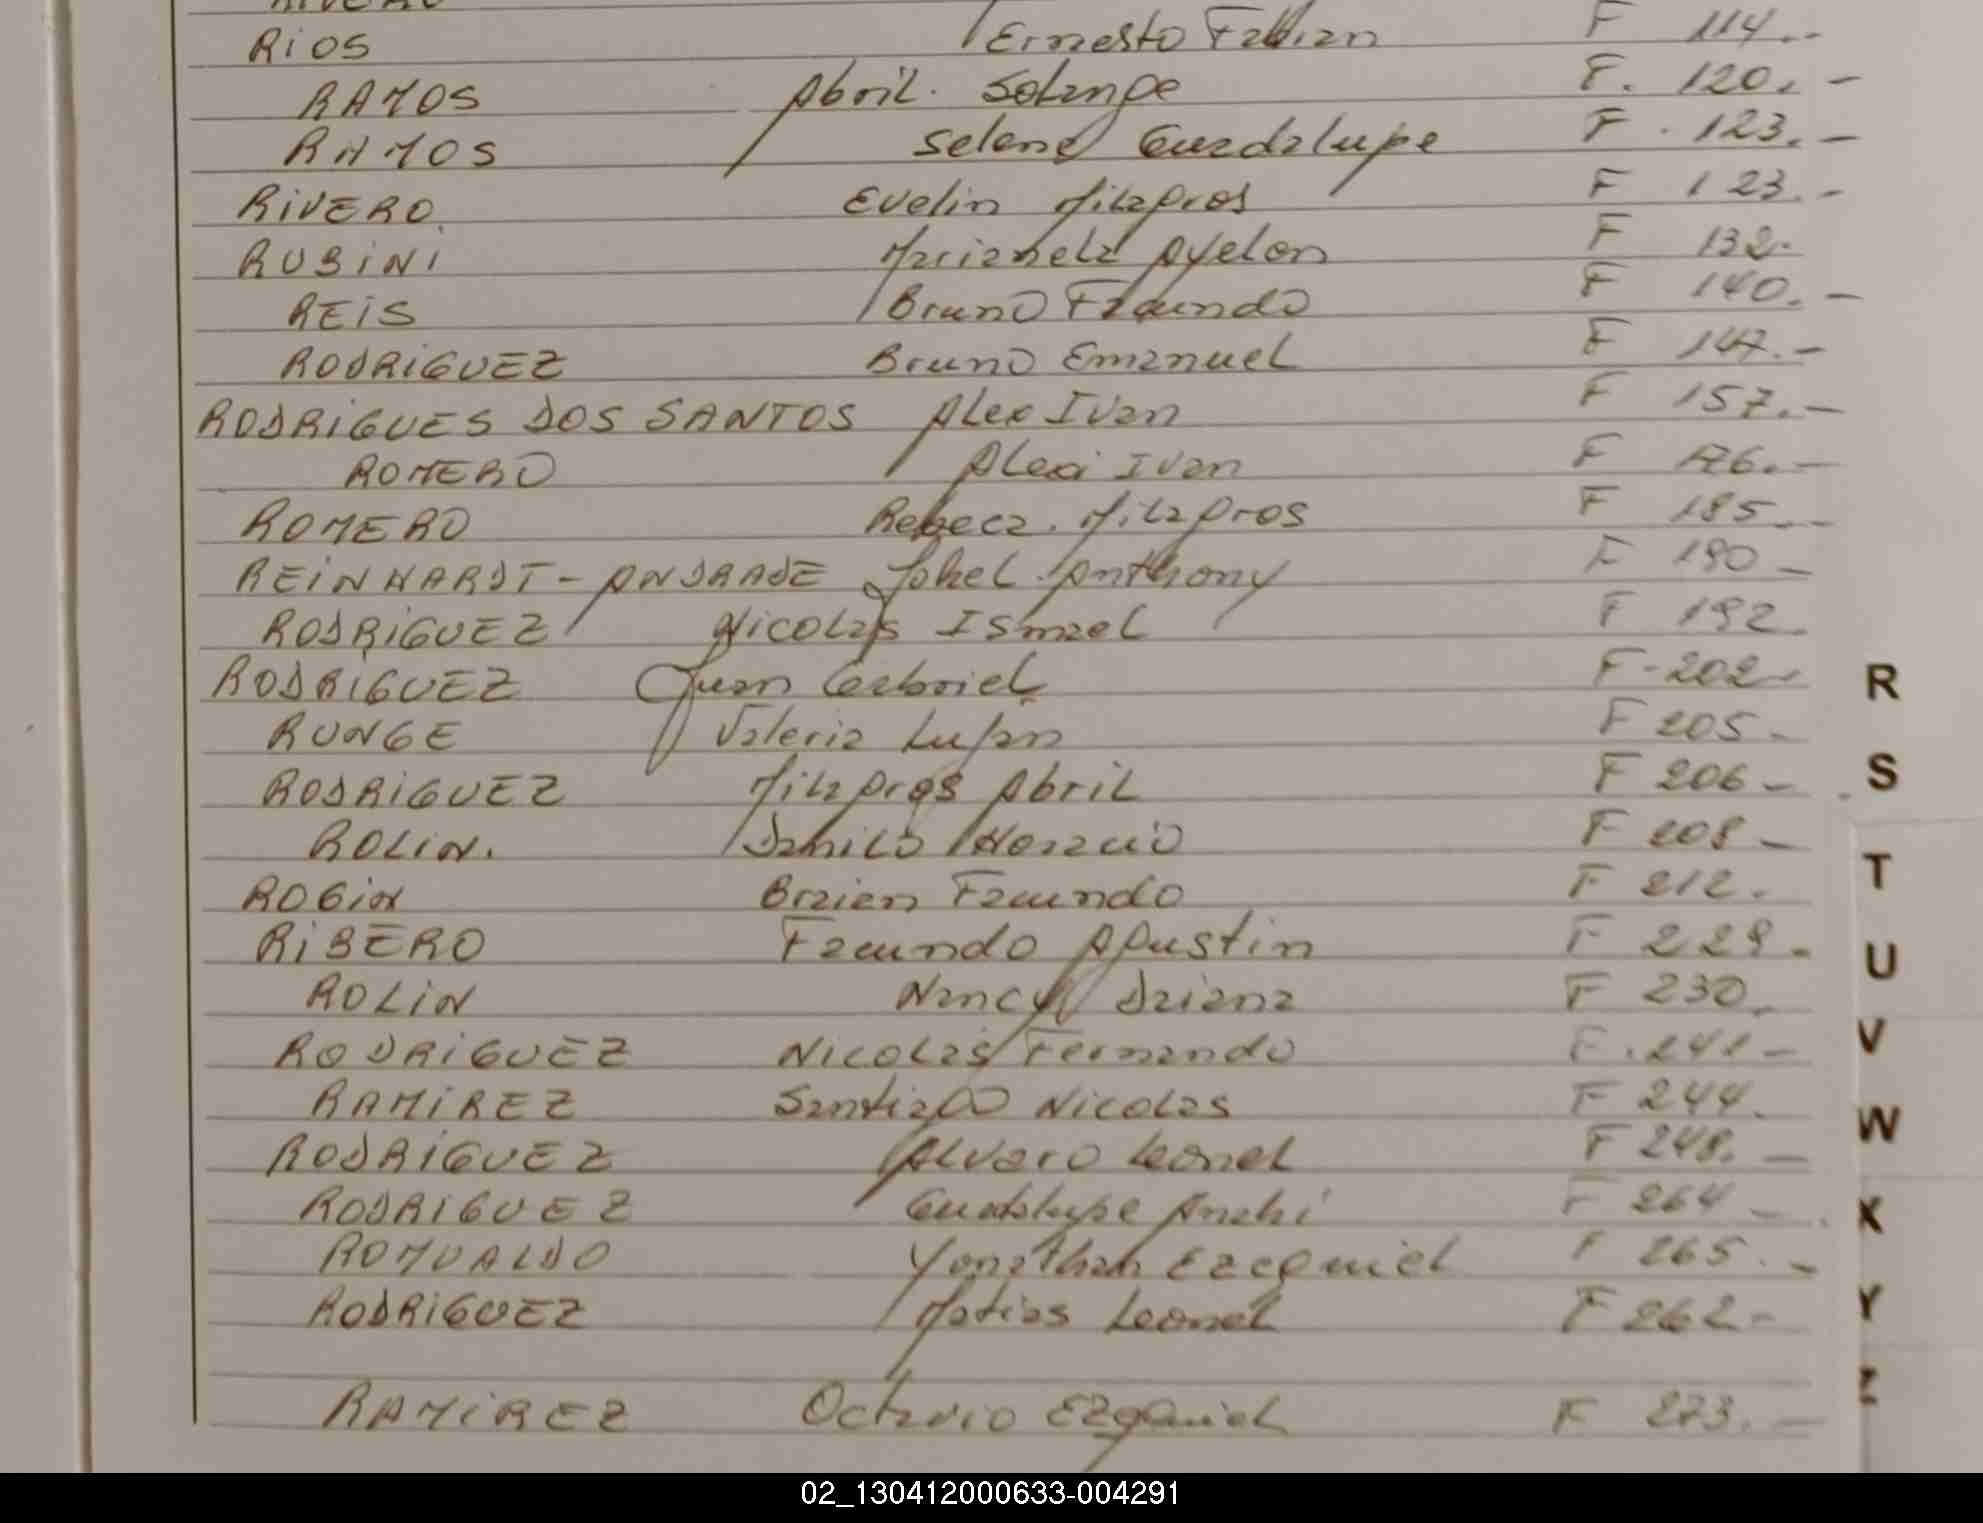 RIOS Ernesto Fabian F 114.-
RAMOS Abril. Solange F. 120.-
RAMOS Selene Guadalupe F. 123.-
RIVERO Evelin Milagros F 123.-
RUBINI Marianela Ayelen F 132.
REIS Bruno Facundo F 140.-
RODRIGUEZ Bruno Emanuel F 147.-
RODRIGUES DOS SANTOS Alex Ivan F 157.-
ROMERO Alexi Ivan F 176.-
ROMERO Rebeca. Milagros F 185.-
REINHARDT-ANDRADE Johel Anthony F 190-
RODRIGUEZ Nicolas Ismael F 192.
RODRIGUEZ Juan Gabriel F-202-
RUNGE Valeria Lujan F 205-
RODRIGUEZ Milagros Abril F 206-
ROLIN. Danilo Horacio F 208-
ROGIN Braien Facundo F 212.
RIBERO Facundo Agustin F 229.
ROLIN Nancy Daiana F 230.
RODRIGUEZ Nicolas Fernando F.241-
RAMIREZ Santiago Nicolas F 244.
RODRIGUEZ Alvaro Leonel F 248.-
RODRIGUEZ Guadalupe Anahi F 264-
ROMUALDO Yonathan Ezequiel F 265.-
RODRIGUEZ Matias Leonel F 262-
RAMIREZ Octavio Ezequiel F 273.-
R
S
T
U
V
W
X
Y
Z
02_130412000633-004291